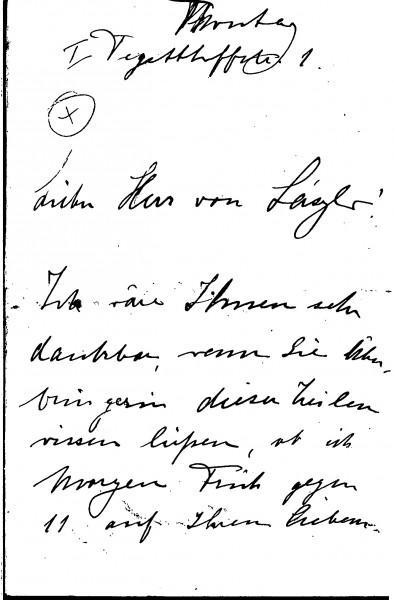 Montag
I Tegetthoffstr. 1.
x
Lieber Herr von László!
Ich wäre Ihnen sehr
dankbar, wenn Sie Über-
bringerin dieser Zeilen
wissen ließen, ob ich
Morgen Früh gegen
11 auf Ihren lieben